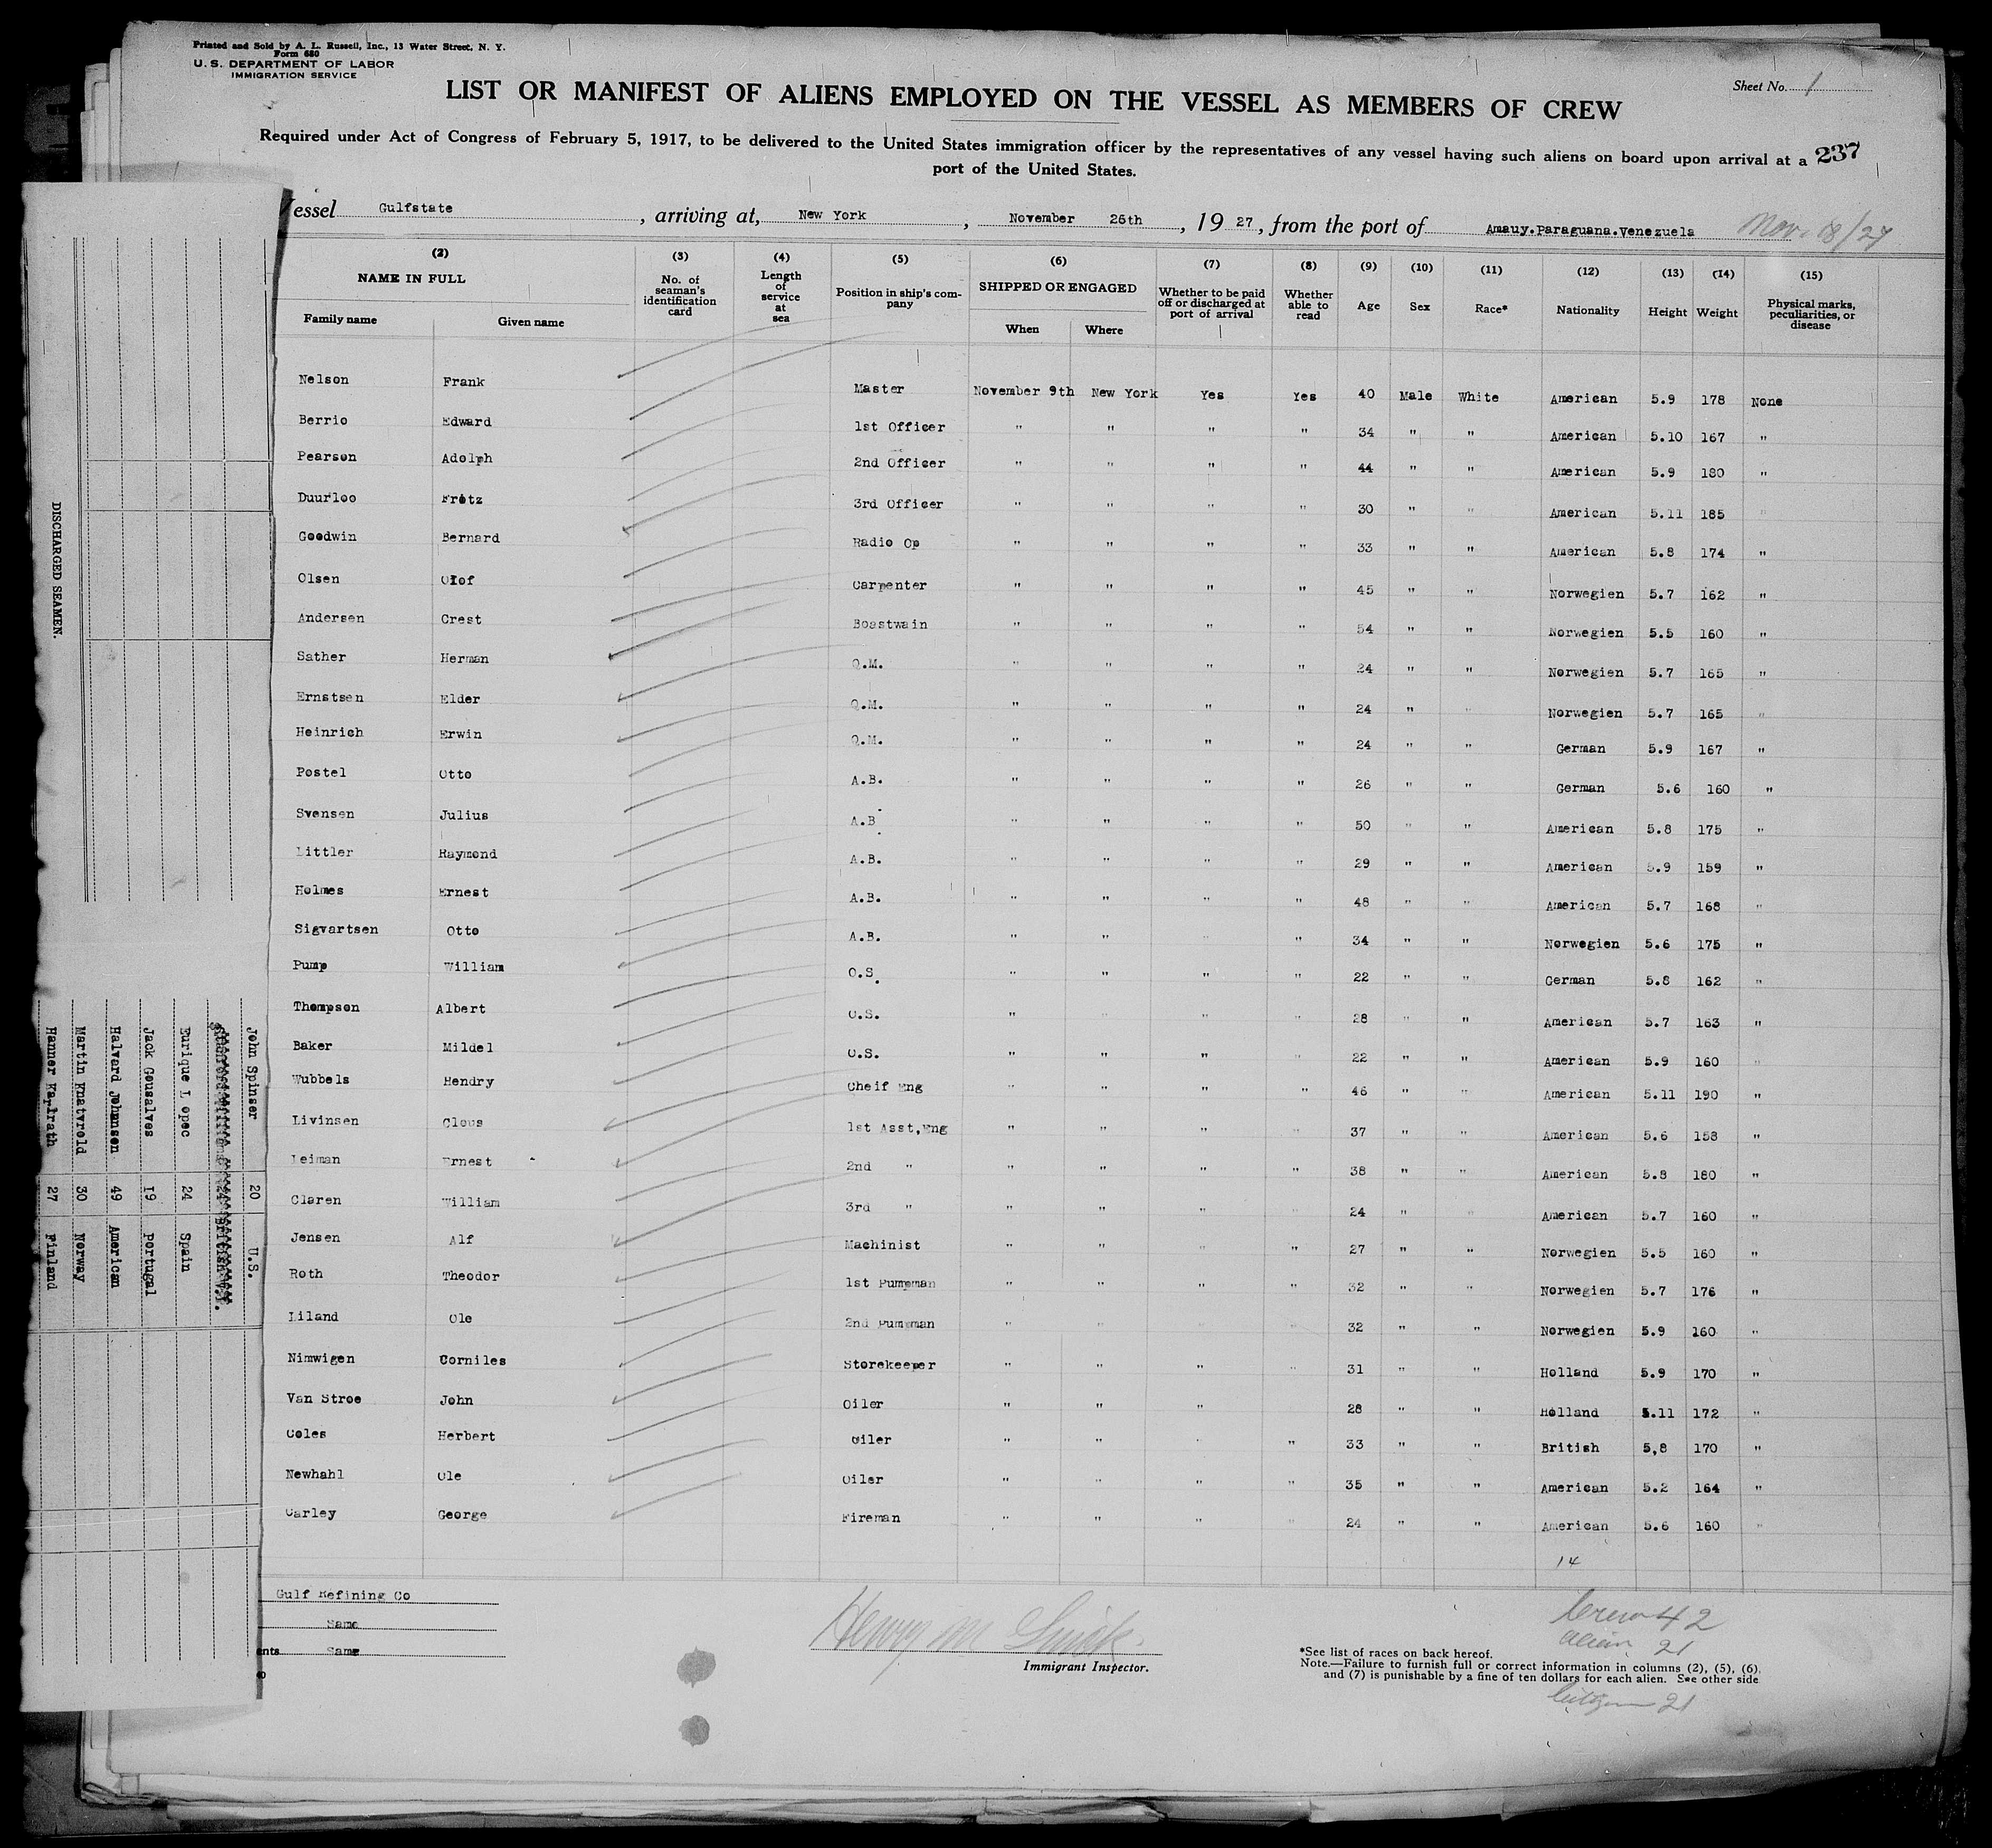 Printed and Sold by A. L. Russell, Inc., 13 Water Street, N. Y.
Form 680
U. S. DEPARTMENT OF LABOR
IMMIGRATION SERVICE
Sheet No. 1
LIST OR MANIFEST OF ALIENS EMPLOYED ON THE VESSEL AS MEMBERS OF CREW
Required under Act of Congress of February 5, 1917, to be delivered to the United States immigration officer by the representatives of any vessel having such aliens on board upon arrival at a 237
port of the United States.
Vessel Gulfstate, arriving at, New York, November 26th, 19 27, from the port of Amauy.Paraguana.Venezuela Nov. 18/27
(2) NAME IN FULL Family name Given name (3) No. of seaman's identification card (4) Length of service at sea (5) Position in ship's company (6) SHIPPED OR ENGAGED When Where (7) Whether to be paid off or discharged at port of arrival (8) Whether able to read (9) Age (10) Sex (11) Race* (12) Nationality (13) Height (14) Weight (15) Physical marks, peculiarities, or disease
Nelson Frank Master November 9th New York Yes Yes 40 Male White American 5.9 178 None
Berrio Edward 1st Officer " " " " 34 " " American 5.10 167 "
Pearson Adolph 2nd Officer " " " " 44 " " American 5.9 180 "
Duurloo Fritz 3rd Officer " " " " 30 " " American 5.11 185 "
Goodwin Bernard Radio Op " " " " 33 " " American 5.8 174 "
Olsen Olof Carpenter " " " " 45 " " Norwegien 5.7 162 "
Andersen Crest Boastwain " " " " 54 " " Norwegien 5.5 160 "
Sather Herman Q.M. " " " " 24 " " Norwegien 5.7 165 "
Ernstsen Elder Q.M. " " " " 24 " " Norwegien 5.7 165 "
Heinrich Erwin Q.M. " " " " 24 " " German 5.9 167 "
Postel Otto A.B. " " " " 26 " " German 5.6 160 "
Svensen Julius A.B. " " " " 50 " " American 5.8 175 "
Littler Raymond A.B. " " " " 29 " " American 5.9 159 "
Holmes Ernest A.B. " " " " 48 " " American 5.7 168 "
Sigvartsen Otto A.B. " " " " 34 " " Norwegien 5.6 175 "
Pump William O.S. " " " " 22 " " German 5.8 162 "
Thompson Albert O.S. " " " " 28 " " American 5.7 163 "
Baker Mildel O.S. " " " " 22 " " American 5.9 160 "
Wubbels Hendry Cheif Eng " " " " 46 " " American 5.11 190 "
Livinsen Clous 1st Asst,Eng " " " " 37 " " American 5.6 158 "
Leiman Ernest 2nd " " " " " 38 " " American 5.8 180 "
Claren William 3rd " " " " " 24 " " American 5.7 160 "
Jensen Alf Machinist " " " " 27 " " Norwegien 5.5 160 "
Roth Theodor 1st Pumpman " " " " 32 " " Norwegien 5.7 176 "
Liland Ole 2nd Pumpman " " " " 32 " " Norwegien 5.9 160 "
Nimwigen Corniles Storekeeper " " " " 31 " " Holland 5.9 170 "
Van Stroe John Oiler " " " 28 " " Holland 5.11 172 "
Coles Herbert Oiler " " " " 33 " " British 5,8 170 "
Newhahl Ole Oiler " " " " 35 " " American 5.2 164 "
Carley George Fireman " " " " 24 " " American 5.6 160 "
14
Gulf Refining Co
Same
ents Same
Immigrant Inspector.
Crew 42
Alien 21
*See list of races on back hereof.
Note.—Failure to furnish full or correct information in columns (2), (5), (6),
and (7) is punishable by a fine of ten dollars for each alien. See other side
Citizen 21
DISCHARGED SEAMEN.
John Spinser 20 U.S.
Eurique Lopec 24 Spain
Jack Gousalves 19 Portugal
Halvard Johnnsen 49 American
Martin Knatvrold 30 Norway
Hanner Karlrath 27 Finland